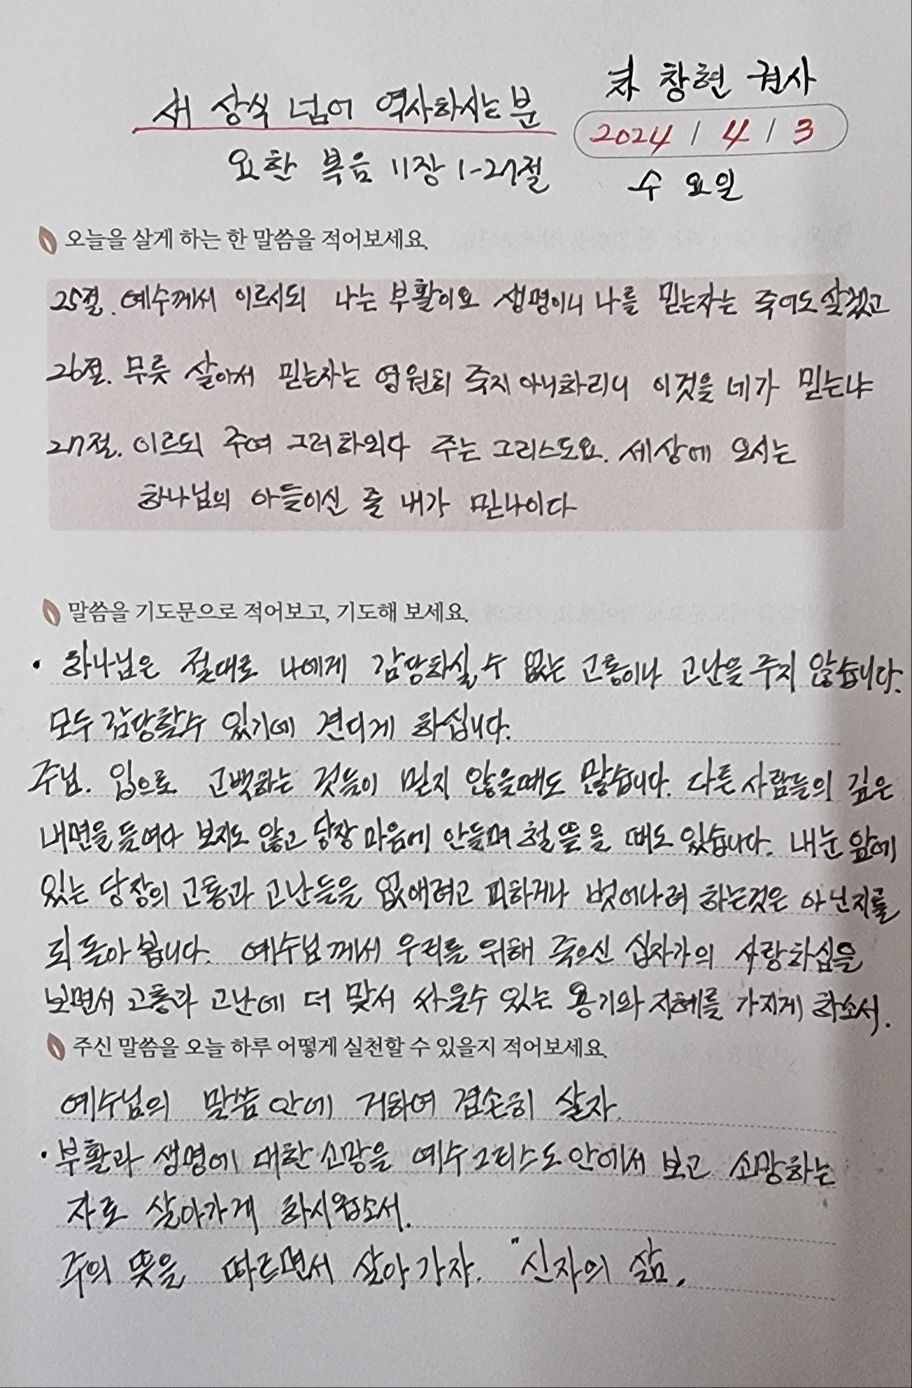 새 상식 넘어 역사하시는 분
차 창현 권사
2024 / 4 / 3
요한 복음 11장 1-27절
수 요일
오늘을 살게 하는 한 말씀을 적어보세요.
25절. 예수께서 이르시되 나는 부활이요 생명이니 나를 믿는자는 죽어도 살겠고
26절. 무릇 살아서 믿는자는 영원히 죽지 아니하리니 이것을 네가 믿는냐
27절. 이르되 주여 그러하외다 주는 그리스도요. 세상에 오시는
하나님의 아들이신 줄 내가 믿나이다
말씀을 기도문으로 적어보고, 기도해 보세요.
• 하나님은 절대로 나에게 감당하실 수 없는 고통이나 고난을 주지 않습니다.
모두 감당할수 있기에 견디게 하십니다.
주님. 입으로 고백하는 것들이 믿지 않을때도 많습니다. 다른 사람들의 깊은
내면을 들여다 보지도 않고 당장 마음에 안들며 헐 뜯을 때도 있습니다. 내눈 앞에
있는 당장의 고통과 고난들을 없애려고 피하거나 벗어나려 하는것은 아닌지를
되돌아 봅니다. 예수님께서 우리를 위해 죽으신 십자가의 사랑하심을
보면서 고통과 고난에 더 맞서 싸울수 있는 용기와 지혜를 가지게 하소서.
주신 말씀을 오늘 하루 어떻게 실천할 수 있을지 적어보세요.
예수님의 말씀 안에 거하여 겸손히 살자.
• 부활과 생명에 대한 소망을 예수 그리스도 안에서 보고 소망하는
자로 살아가게 하시옵소서.
주의 뜻을 따르면서 살아 가자. "신자의 삶.